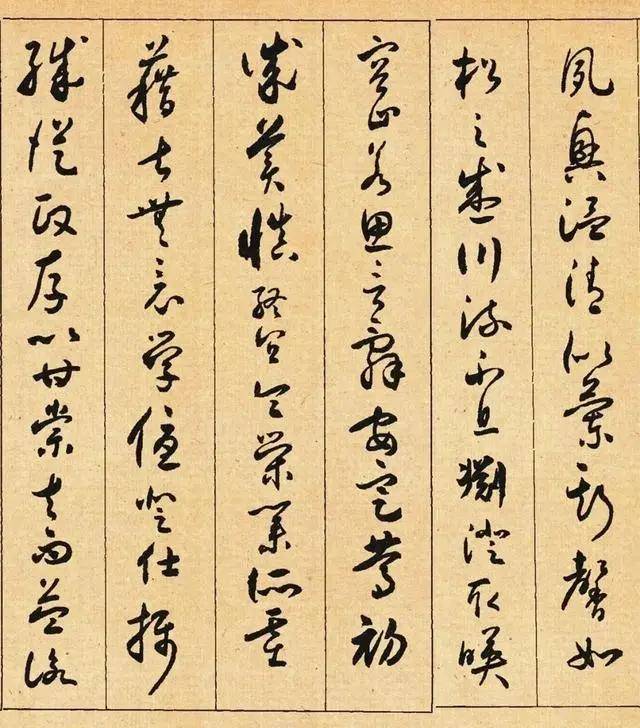 夙興溫清似蘭斯馨如
松之盛川流不息淵澄取暎
容止若思言辭安定篤初
誠美慎終宜令榮業所基
藉甚無竟學優登仕攝
職從政存以甘棠去而益詠